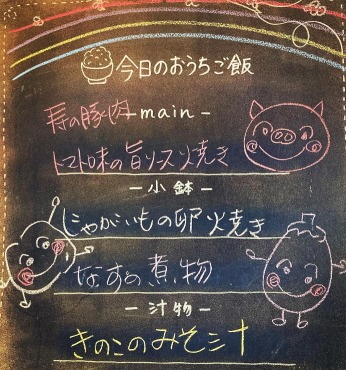 今日のおうちご飯
の豚肉 -main-
トマト味の旨ソース焼き
-小鉢-
じゃがいもの卵焼き
なすの煮物
-汁物-
きのこのみそ汁